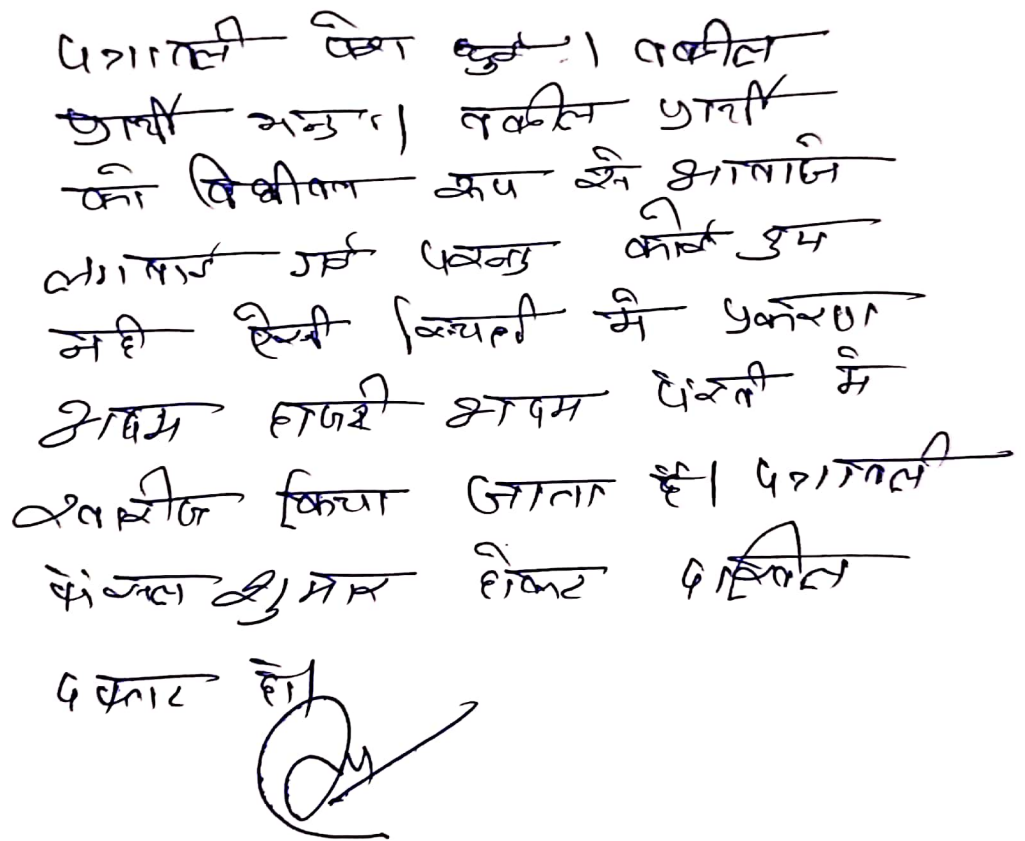 पत्रावली पेश हुई। वकील
प्रार्थी अनु। वकील प्रार्थी
को विधीवत रूप से आवाजे
लगवाई गई परन्तु कोई उप
नही ऐसी स्थिती मे प्रकरण
अदम हाजरी अदम पैरवी मे
खारीज किया जाता है। पत्रावली
फैसल शुमार होकर दाखिल
दफ्तर हो।